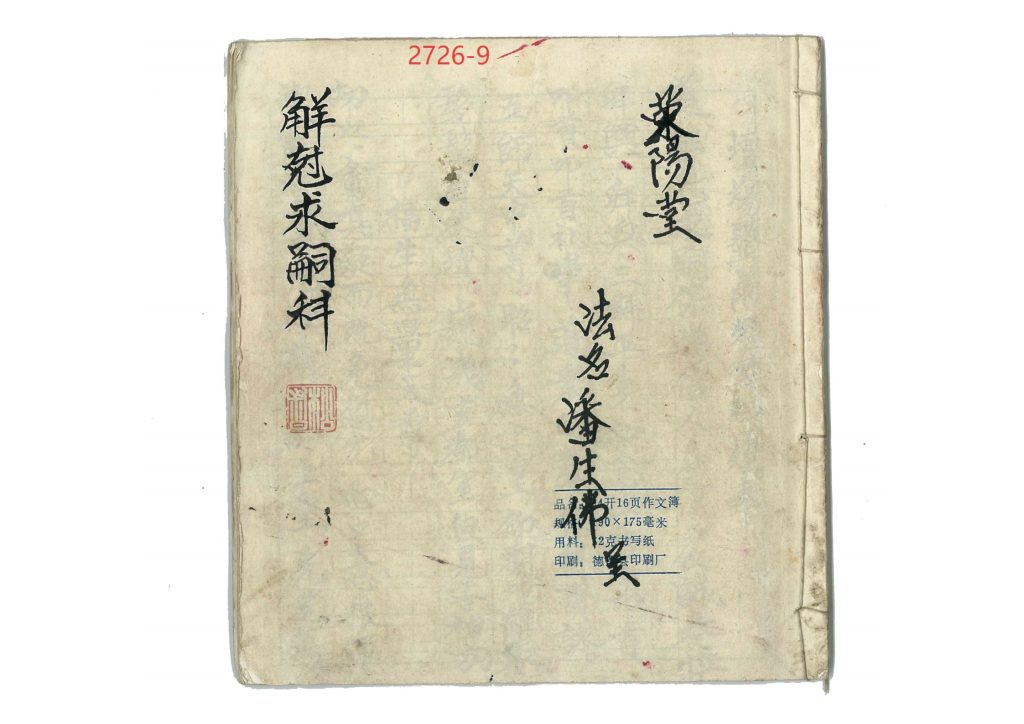 2726-9
荥陽堂
法名潘生佛
解尅求嗣科
品名：4开16页作文簿
规格：190×175毫米
用料：52克书写纸
印刷：德 县印刷厂